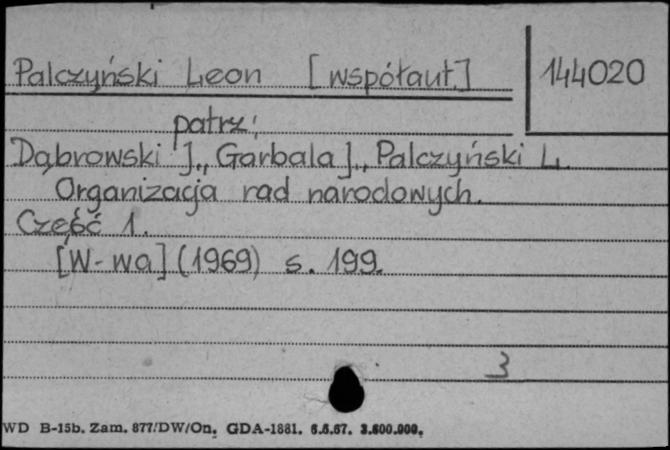 Palczyński Leon [współaut.] 144020
patrz:
Dąbrowski J., Garbala J., Palczyński L.
Organizacja rad narodowych.
Część 1.
[W-wa] (1969) s. 199.
3
WD B-15b. Zam. 877/DW/On. GDA-1881. 6.5.67. 3.600.000.